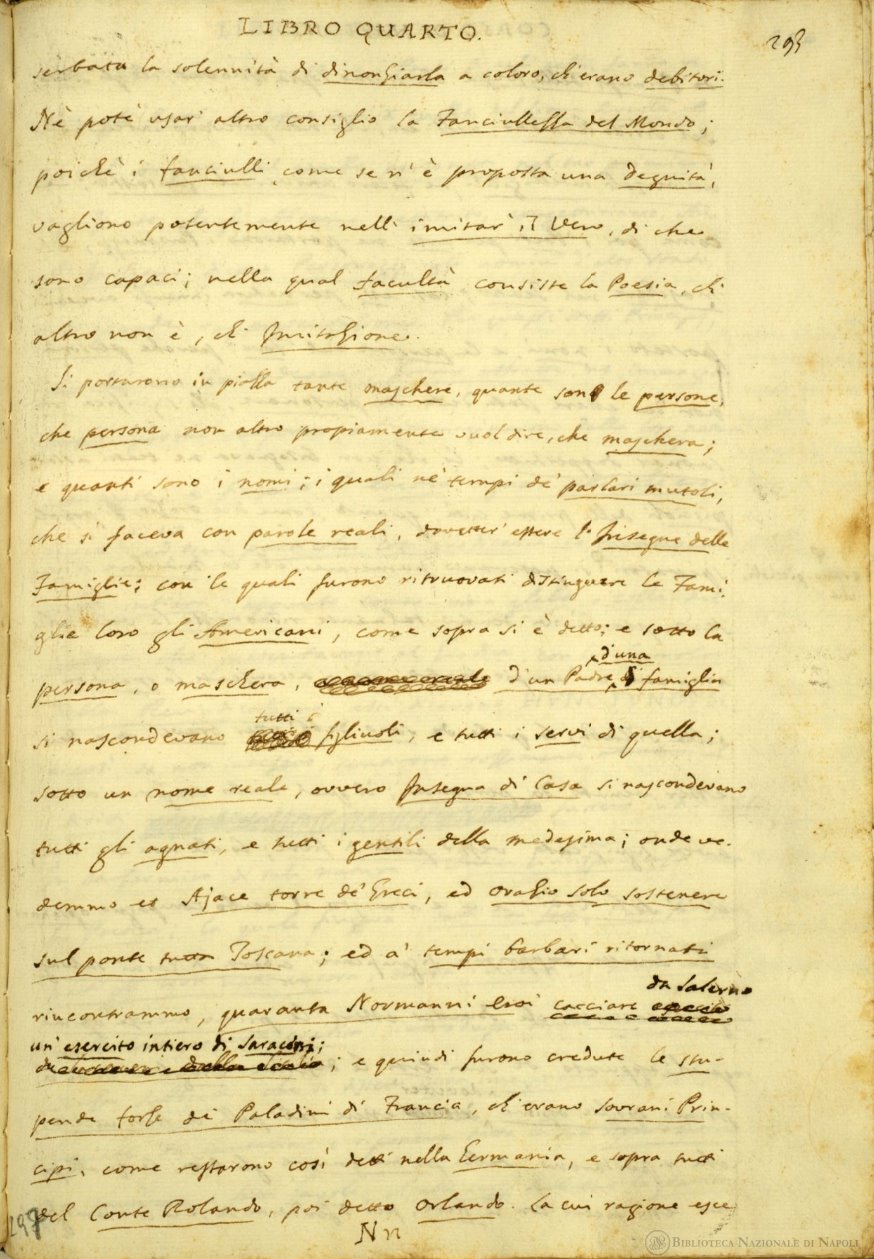 LIBRO QUARTO.
293
serbata la solennità di dinonziarla a coloro, ch'erano debitori.
Nè potè usar' altro consiglio la Fanciullezza del Mondo;
poichè i fanciulli, come se n' è proposta una degnità,
vagliono potentemente nell' imitar' il Vero, di che
sono capaci; nella qual facultà consiste la Poesia, ch'
altro non è, ch' Imitazione.
Si portarono in piazza tante maschere, quante son le persone,
che persona non altro propiamente vuol dire, che maschera;
e quanti sono i nomi; i quali ne' tempi de' parlari mutoli,
che si faceva con parole reali, dovetter' essere l' Insegne delle
Famiglie; con le quali furono ritruovati distinguere le Fami-
glie loro gli Americani, come sopra si è detto; e sotto la
d'una
persona, o maschera, d'un Padre famiglia
tutti i
si nascondevano figliuoli, e tutti i servi di quella;
sotto un nome reale, ovvero Insegna di Casa si nascondevano
tutti gli agnati, e tutti i gentili della medesima; onde ve-
demmo et Ajace torre de' Greci, ed Orazio solo sostenere
sul ponte tutta Toscana; ed a' tempi barbari ritornati
da Salerno
rincontrammo, quaranta Normanni Eroi cacciare
un' esercito intiero di Saracini;
; e quindi furono credute le stu-
pende forze de' Paladini di Francia, ch'erano sovrani Prin-
cipi, come restarono così detti nella Germania, e sopra tutti
del Conte Rolando, poi detto Orlando. La cui ragione esce
Nn
297
BIBLIOTECA NAZIONALE DI NAPOLI